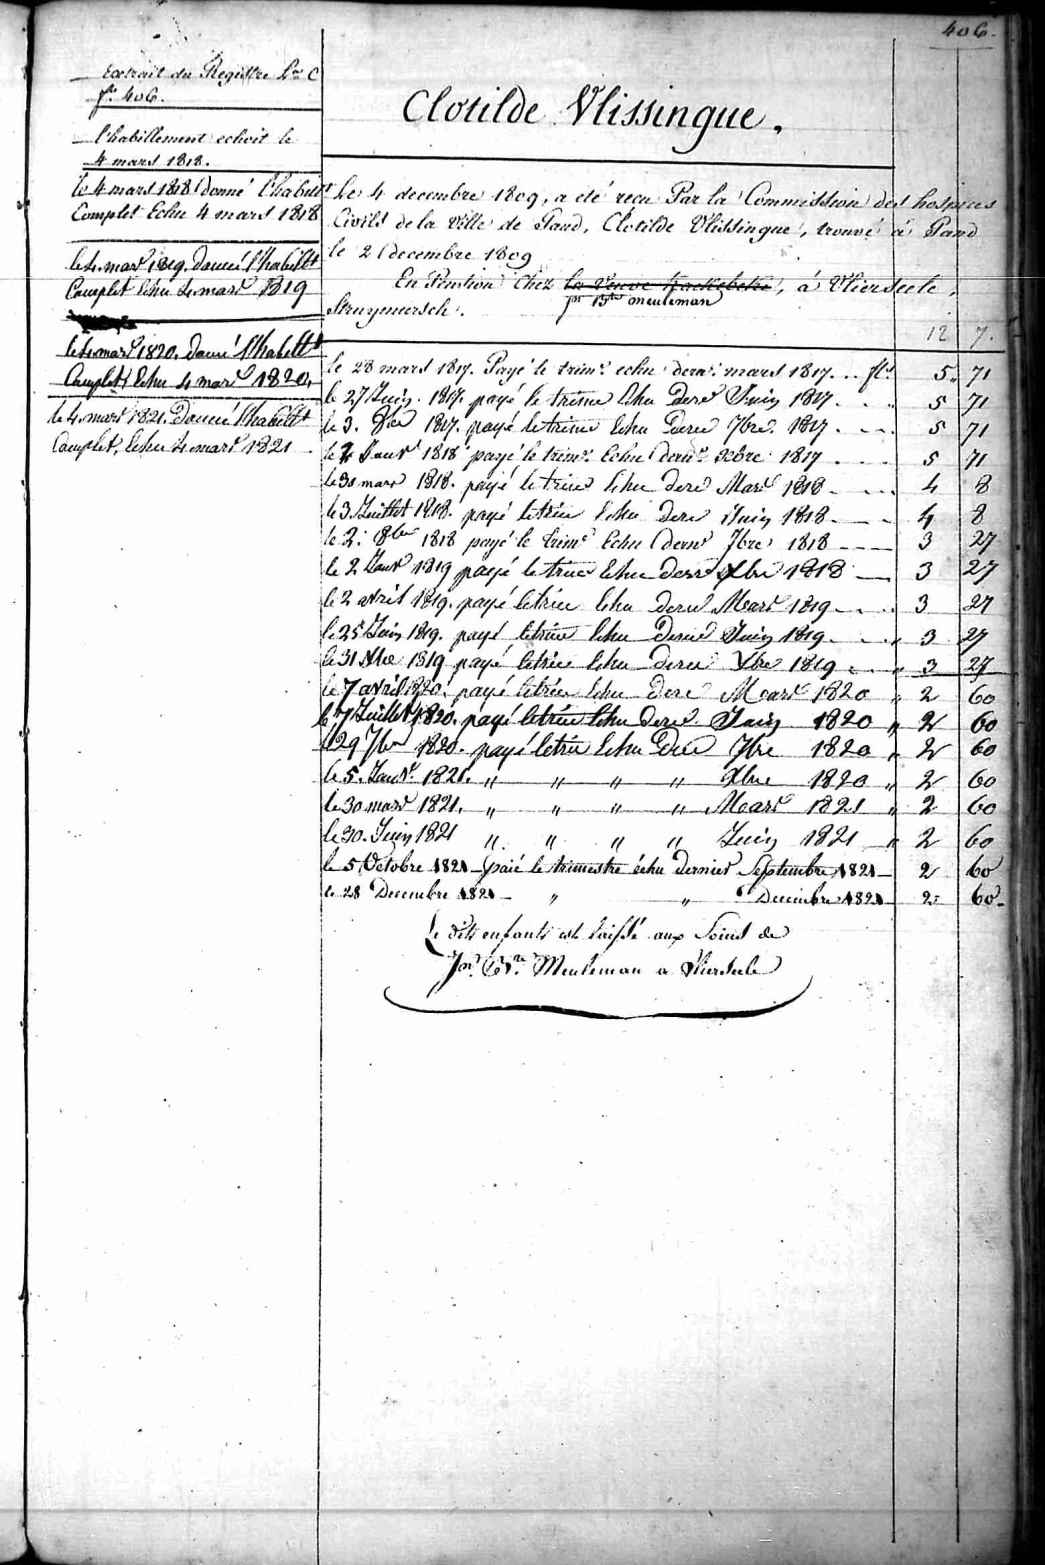 406.
Extrait du Registre Lre C
fo 406.
l'habillement echoit le
4 mars 1818.
le 4 mars 1818 donné l'habillt
Complet Echu 4 mars 1818
le 4 mars 1819 donné l'habillt
Complet Echu 4 mars 1819
le 4 mars 1820. donné l'habillt
Complet Echu 4 mars 1820.
le 4 mars 1821. Donné l'habillt
Complet, Echu 4 mars 1821
Clotilde Vlissingue.
Le 4 decembre 1809, a eté recu Par la Commission des hospices
Civils de la ville de Gand, Clotilde Vlissingue, trouvé à Gand
le 2 decembre 1809
En Pension Chez la Veuve, à Vlierseele,
meuleman
12 7.
le 28 mars 1817. Payé le trimre echu dernr mars 1817... fls 5 „ 71
le 27 Juin. 1817. payé le trime Echu Derr Juin 1817 5 71
le 3. 8bre 1817. payé le trime Echu Derr 7bre. 1817 5 71
le 2 Janvr 1818 payé le trimre Echu dernr Xbre 1817 5 71
le 31 mars 1818. payé le trime Echu derr Mars 1818 4 8
le 3 Juillet 1818. payé le trime Echu derr Juin 1818 4 8
le 2. 8bre 1818 payé le trime Echu dernr 7bre 1818 3 27
le 2 Janvr 1819 payé le trime Echu derr Xbre 1818 3 27
le 2 avril 1819. payé le trime Echu derr Mars 1819 3 27
le 25 Juin 1819. payé le trime Echu Derr Juin 1819 „ 3 27
le 31 Xbre 1819 payé le trime Echu derr Xbre 1819 „ 3 27
le 7 avril 1820. payé le trime Echu derr Mars 1820 „ 2 60
le 7 Juillet 1820. payé le trime Echu derr Juin 1820 „ 2 60
le 29 7bre 1820. payé le trime Echu Derr 7bre 1820 „ 2 60
le 5. Janvr 1821. „ „ „ „ Xbre 1820 „ 2 60
le 30 mars 1821. „ „ „ „ Mars 1821 „ 2 60
le 30. Juin 1821 „ „ „ „ Juin 1821 „ 2 60
le 5 Octobre 1821 – paié le trimestre échu dernier Septembre 1821 – 2 60
le 28 Decembre 1821 – „ „ Decembre 1821 – 2 „ 60 –
Le dits enfants est laissé aux Soins de
Meuleman a Vlierseele